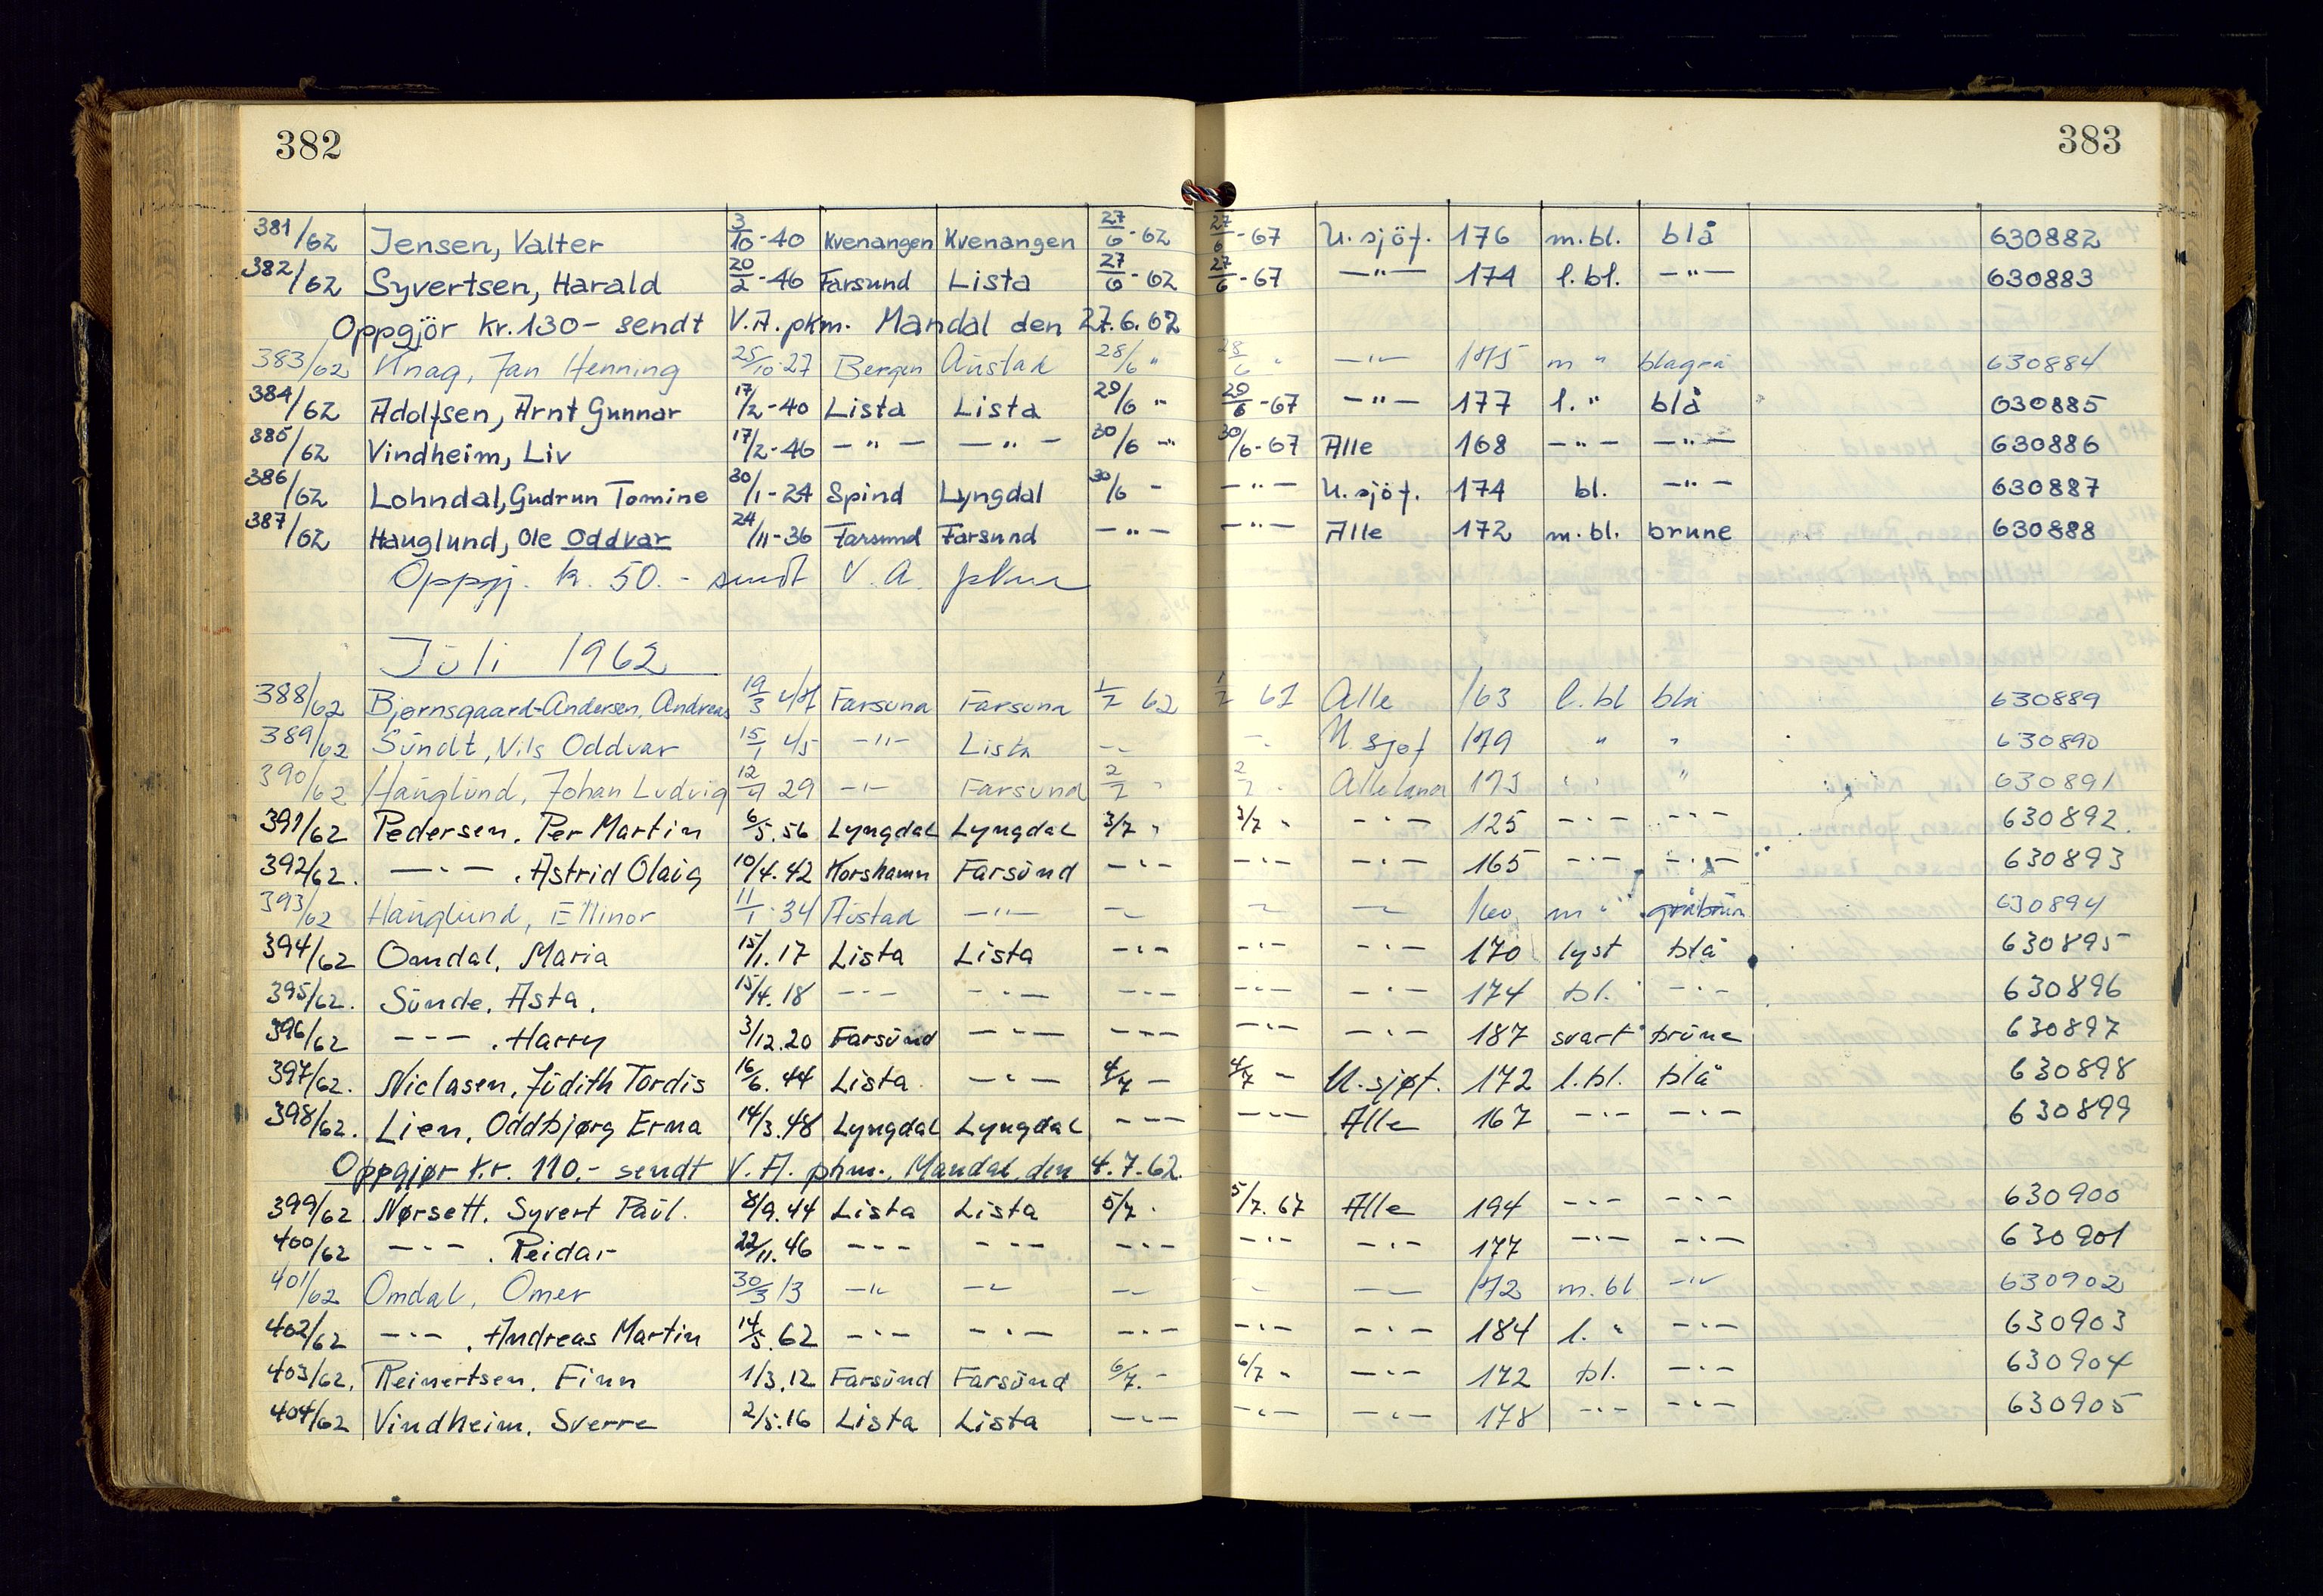 382
383
381/62 Jensen, Valter 3/10-40 Kvenangen Kvenangen 27/6-62 27/6-67 U. sjöf. 176 m.bl. blå 630882
382/62 Syvertsen, Harald 20/2-46 Farsund Lista 27/6-62 27/6-67 —"— 174 l.bl. —"— 630883
Oppgjör kr. 130- sendt V.A. pkm. Mandal den 27.6.62
383/62 Knag, Jan Henning 25/10-27 Bergen Austad 28/6 " 28/6 " —"— 175 m " blågrå 630884
384/62 Adolfsen, Arnt Gunnar 17/2-40 Lista Lista 29/6 " 29/6-67 —"— 177 l. " blå 630885
385/62 Vindheim, Liv 17/2-46 —"— —"— 30/6 -" 30/6-67 Alle 168 —"— —"— 630886
386/62 Lohndal, Gudrun Tomine 30/1-24 Spind Lyngdal 30/6 - —"— U. sjöf. 174 bl. —"— 630887
387/62 Hauglund, Ole Oddvar 24/11-36 Farsund Farsund —"— —"— Alle 172 m.bl. brune 630888
Oppgj. kr. 50.- sendt V.A. pkm
Juli 1962
388/62 Bjørnsgaard-Andersen, Andreas 19/3 47 Farsund Farsund 1/7 62 1/7 67 Alle 163 l.bl blå 630889
389/62 Sundt, Nils Oddvar 15/1 45 —"— Lista -"- -"- U. sjøf 179 " " 630890
390/62 Hauglund, Johan Ludvig 12/4 29 —"— Farsund 2/7 " 2/7 " Alle land 175 " " " 630891
391/62 Pedersen, Per Martin 6/5.56 Lyngdal Lyngdal 3/7 " 3/7 " —"— 125 —"— —"— 630892.
392/62. —"— , Astrid Olaug 10/4.42 Korshamn Farsund —"— —"— —"— 165 —"— —"— 630893
393/62 Hauglund, Ellinor 11/1-34 Austad —"— —"— —"— —"— 160 m " gråbrun 630894
394/62 Omdal, Maria 15/1.17 Lista Lista —"— —"— —"— 170 lyst blå 630895
395/62. Sunde, Asta. 15/4.18 —"— —"— —"— —"— —"— 174 bl. —"— 630896
396/62 —"— , Harry 3/12.20 Farsund —"— —"— —"— —"— 187 svart brune 630897
397/62. Niclasen, Judith Tordis 16/6.44 Lista —"— 4/7 - 4/7 - U. sjøf. 172 l.bl. blå 630898
398/62. Lien, Oddbjørg Erna 14/3.48 Lyngdal Lyngdal —"— —"— Alle 167 —"— —"— 630899
Oppgjør kr. 110.- sendt V.A. pkm. Mandal den 4.7.62.
399/62 Nørsett, Syvert Paul. 8/9.44 Lista Lista 5/7 . 5/7.67 Alle 194 —"— —"— 630900
400/62 —"— , Reidar 22/11.46 —"— —"— —"— —"— —"— 177 —"— —"— 630901
401/62 Omdal, Omer 30/3 13 —"— —"— —"— —"— —"— 172 m.bl —"— 630902
402/62 —"— , Andreas Martin 14/5.62 —"— —"— —"— —"— —"— 184 l. " —"— 630903
403/62. Reinertsen, Finn 1/3.12 Farsund Farsund 6/7.- 6/7 " —"— 172 bl. —"— 630904
404/62 Vindheim, Sverre 2/5.16 Lista Lista —"— —"— —"— 178 —"— —"— 630905